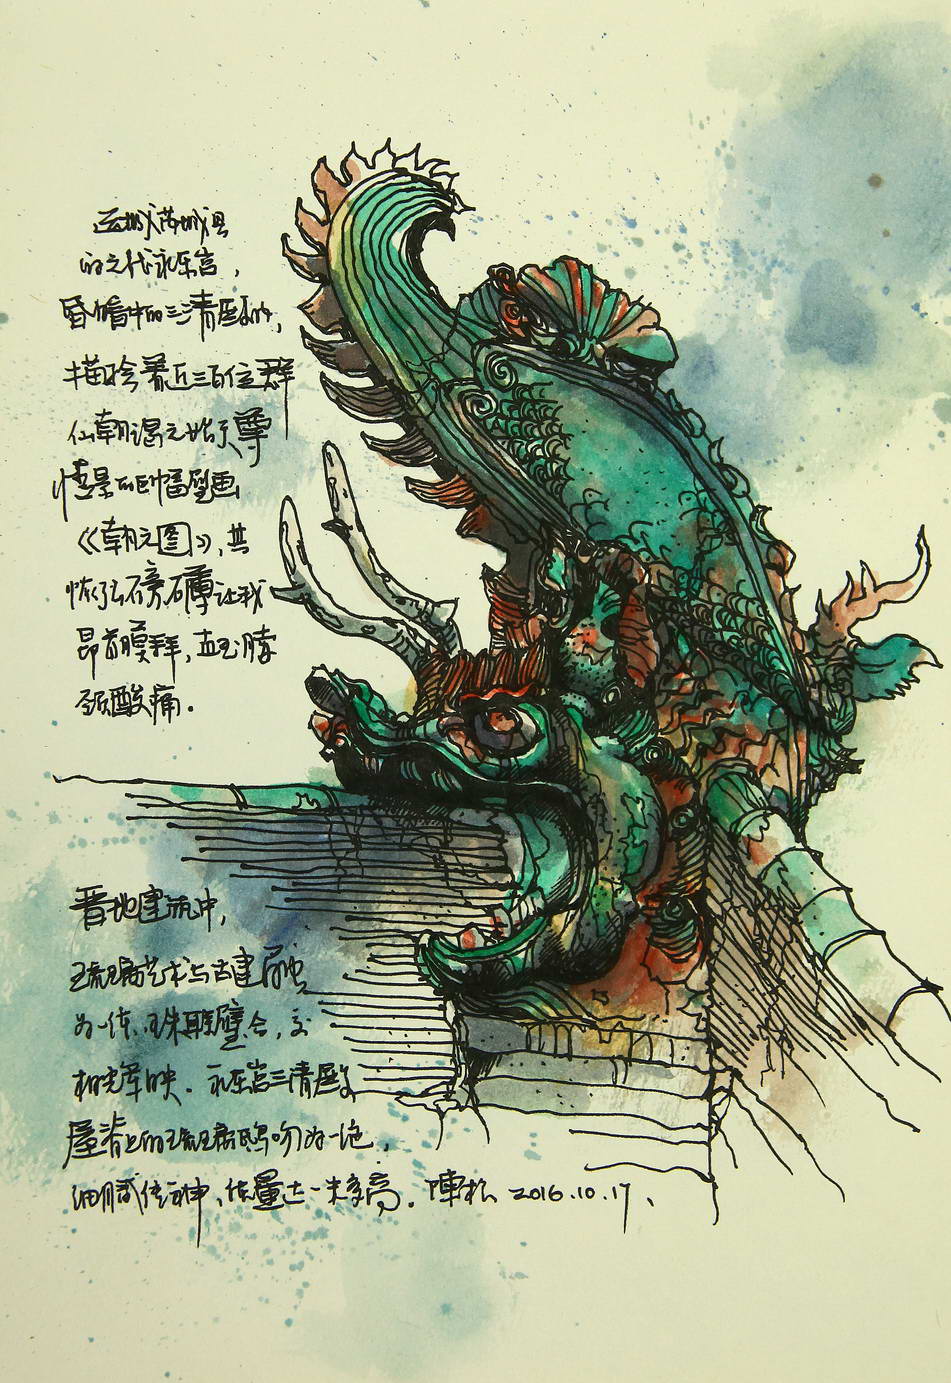 运城芮城县
的元代永乐宫，
昏暗中的三清殿内，
描绘着近三百位群
仙朝谒元始天尊
情景的巨幅壁画
《朝元图》，其
恢弘磅礴让我
昂首膜拜，直至脖
颈酸痛。
晋地建筑中，
琉璃艺术与古建融
为一体、珠联璧合，交
相光辉映．永乐宫三清殿
屋脊上的琉璃鸱吻为一绝，
细腻传神、体量达一米多高．陳松 2016.10.17、